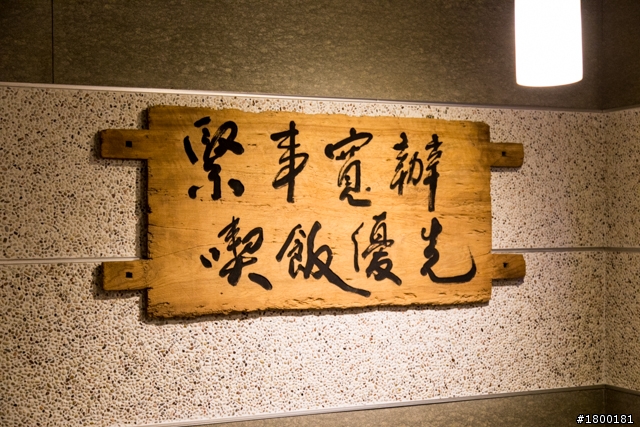 緊事寬辦
喫飯優先
#1800181